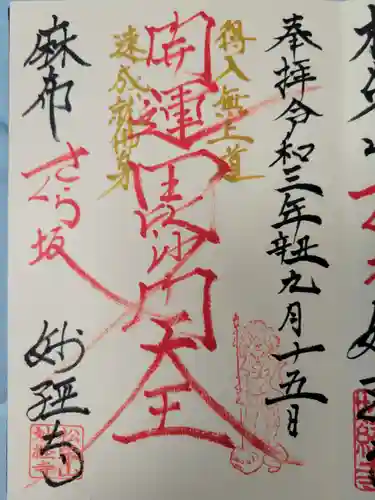 奉拝令和三年辛丑九月十五日
得入無上道
開運毘沙門天王
速成就仏身
麻布
さくら坂
妙経寺